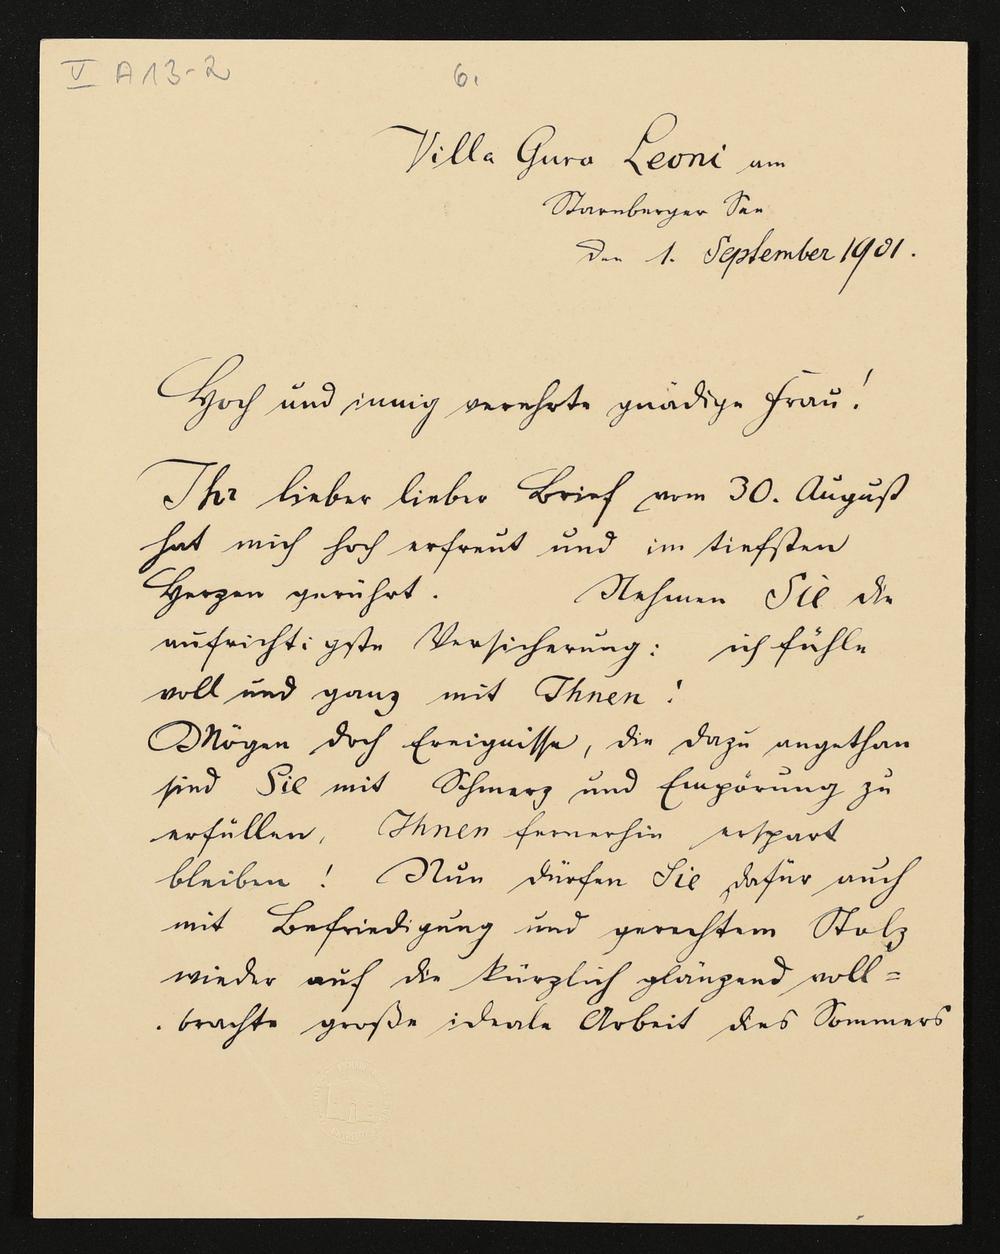 V A 13-2
6.
Villa Gura Leoni am
Starnberger See
den 1. September 1901.
Hoch und innig verehrte gnädige Frau!
Ihr lieber lieber Brief vom 30. August
hat mich hoch erfreut und im tiefsten
Herzen gerührt. Nehmen Sie die
aufrichtigste Versicherung: ich fühle
voll und ganz mit Ihnen!
Mögen doch Ereignisse, die dazu angethan
sind Sie mit Schmerz und Empörung zu
erfüllen, Ihnen fernerhin erspart
bleiben! Nun dürfen Sie dafür auch
mit Befriedigung und gerechtem Stolz
wieder auf die kürzlich glänzend voll=
brachte große ideale Arbeit des Sommers